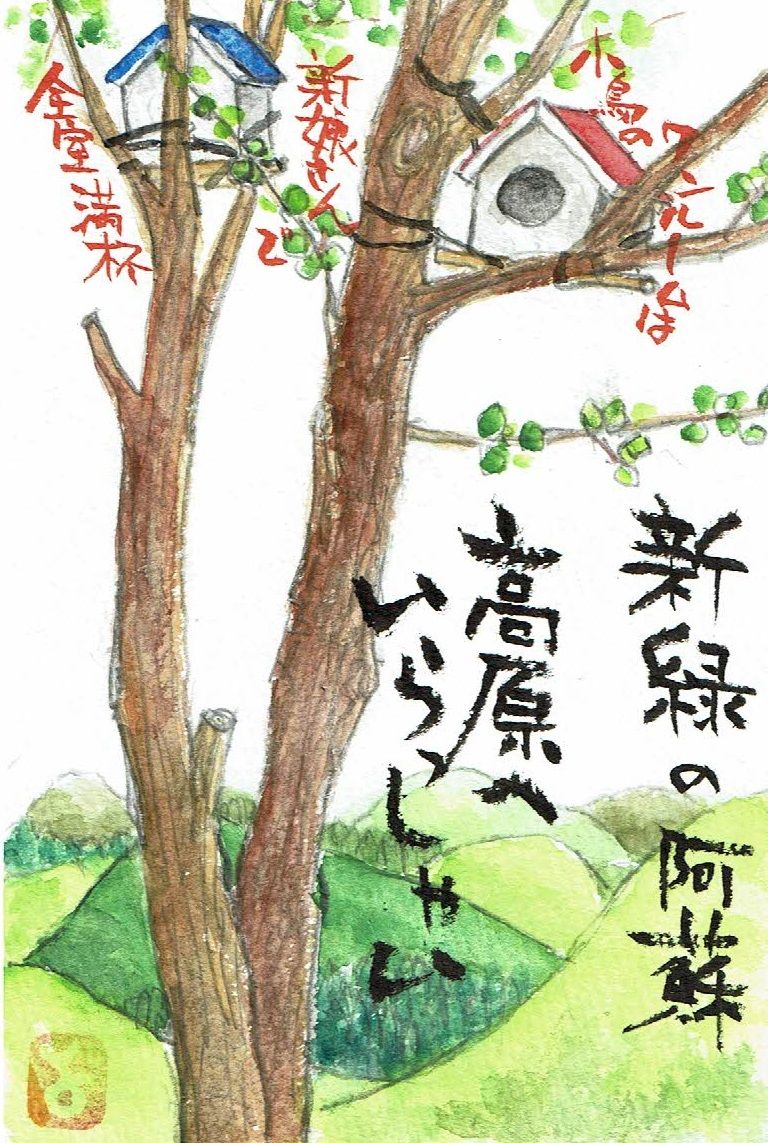 小鳥の
ワンルームは
新婚さん
で
全室
満杯
新緑の阿蘇
高原へ
いらっしゃい